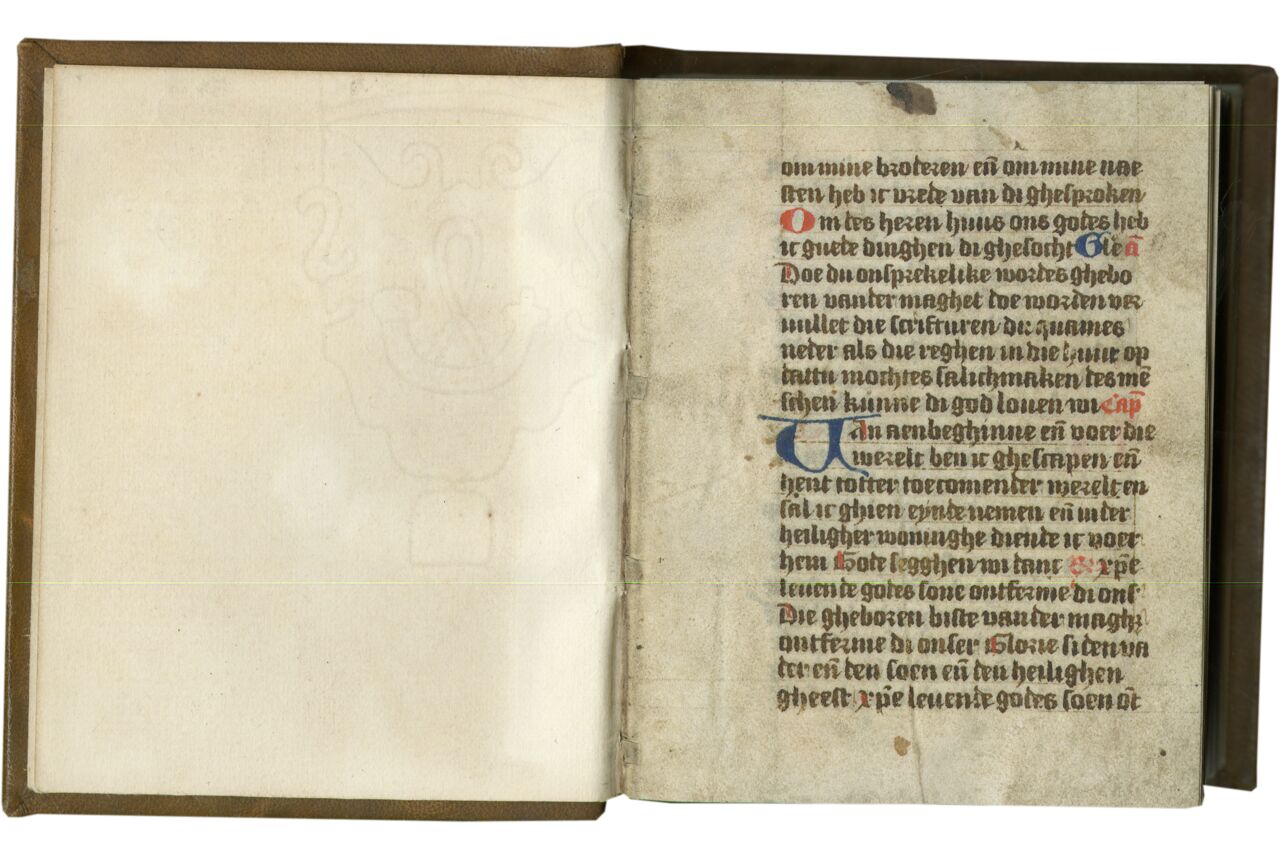 om mine broderen eñ om mine nae
sten heb ic vrede van di ghesproken
Om des heren huus ons godes heb
ic guede dinghen di ghesocht Gle añ
Doe du onsprekelike wordes ghebo
ren vander maghet doe worden ver
uullet die scrifturen du quames
neder als die reghen in die huut op
dattu mochtes salichmaken des mē
schen kunne di god louen wi Cap̄
Uan aenbeghinne eñ voer die
werelt ben ic ghescapen eñ
hent totter toecomender werelt en
sal ic ghien eynde nemen eñ in der
heiligher woninghe diende ic voer
hem Gode segghen wi danc xp̄e
leuende godes sone ontferme di ons
Die gheboren biste vander magh
ontferme di onser Glorie si den va
der eñ den soen eñ den heilighen
gheest xp̄e leuende godes soen ōt